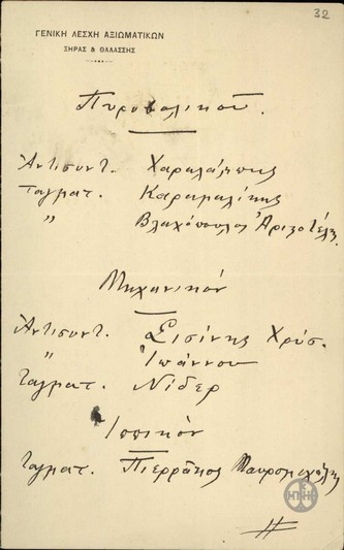 32
ΓΕΝΙΚΗ ΛΕΣΧΗ ΑΞΙΩΜΑΤΙΚΩΝ
ΞΗΡΑΣ & ΘΑΛΑΣΣΗΣ
Πυροβολικού.
Αντισυντ. Χαραλάμπης
Ταγματ. Καραμαλίκης
" Βλαχόπουλος Αριστοτέλ.
Μηχανικόν
Αντισυντ. Σισίνης Χρύσ.
" Ιωάννου
Ταγματ. Νίδερ
Ιππικόν
Ταγματ. Πιερράκος Μαυρομιχάλης